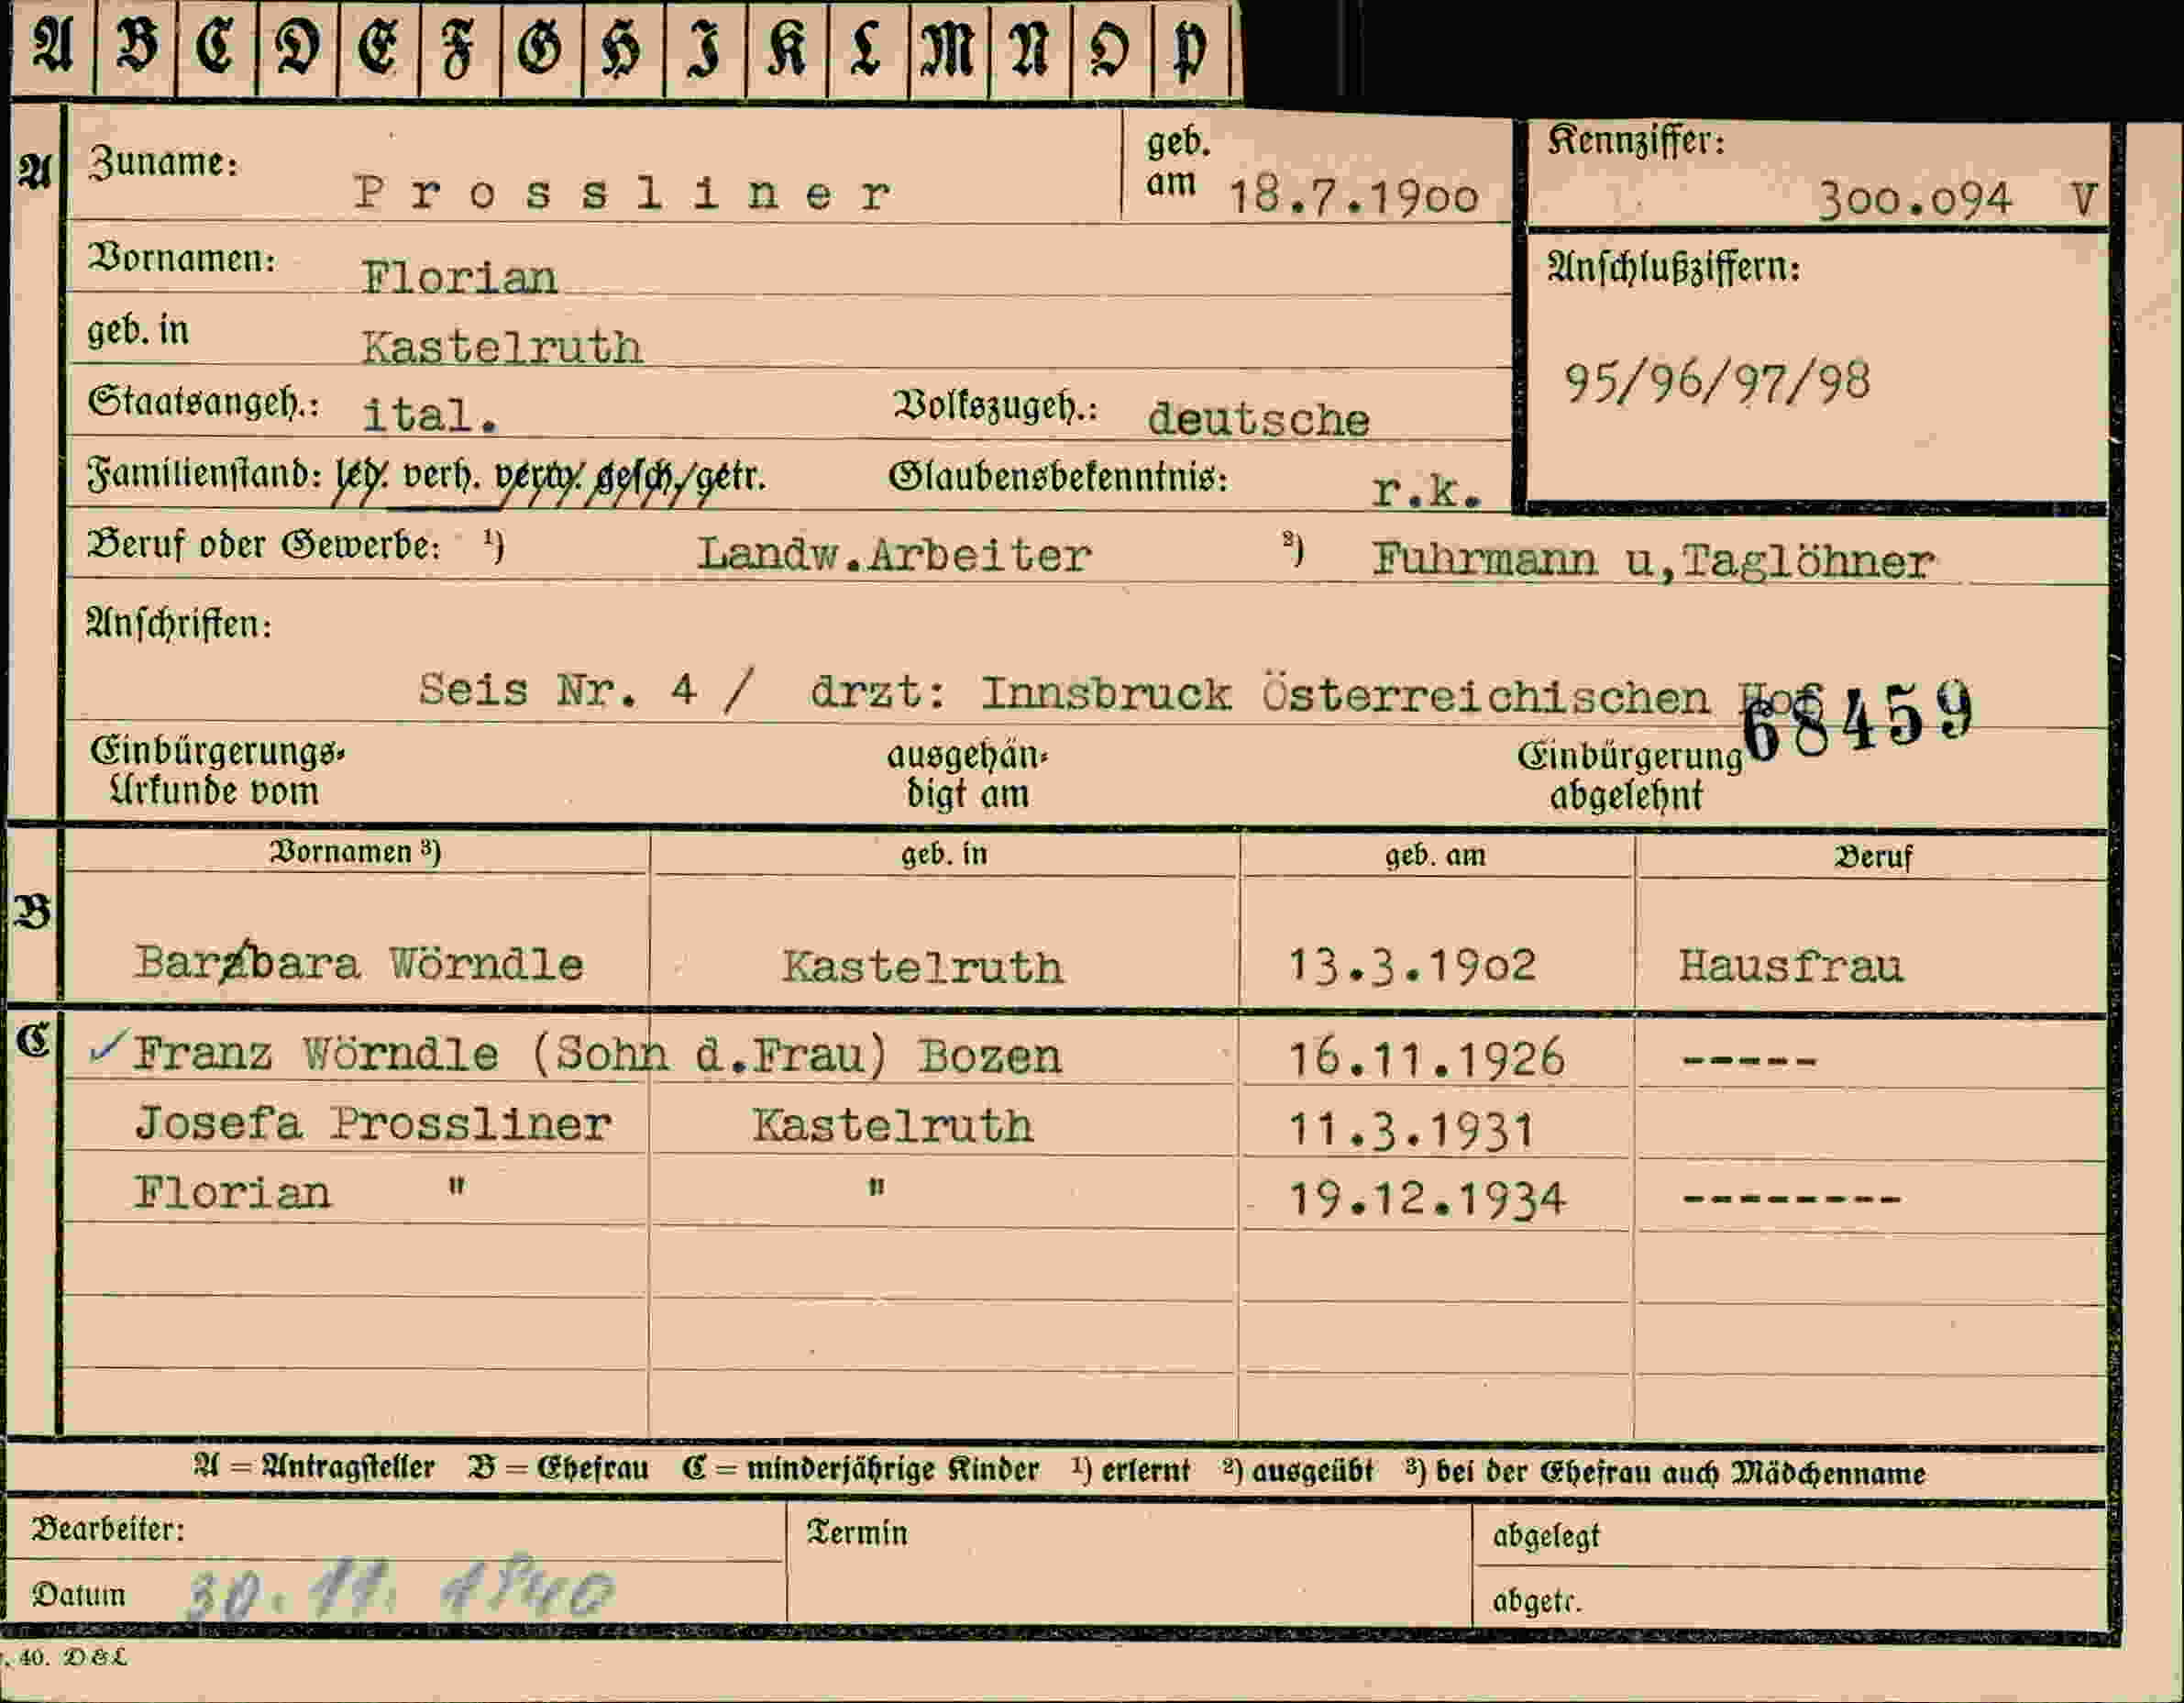 A B C D E F G H I K L M N O P
A
Zuname: Prossliner
geb. am 18.7.1900
Kennziffer: 300.094 V
Vornamen: Florian
Anschlußziffern:
95/96/97/98
geb. in Kastelruth
Staatsangeh.: ital. Volkszugeh.: deutsche
Familienstand: led. verh. verw. gesch. getr. Glaubensbekenntnis: r.k.
Beruf oder Gewerbe: ¹) Landw.Arbeiter ²) Fuhrmann u,Taglöhner
Anschriften:
Seis Nr. 4 / drzt: Innsbruck Österreichischen Hof
68459
Einbürgerungs-
Urkunde vom
ausgehän-
digt am
Einbürgerung
abgelehnt
Vornamen ³) geb. in geb. am Beruf
B
Barabara Wörndle Kastelruth 13.3.1902 Hausfrau
C
✓Franz Wörndle (Sohn d.Frau) Bozen 16.11.1926 -----
Josefa Prossliner Kastelruth 11.3.1931
Florian " " 19.12.1934 --------
A = Antragsteller B = Ehefrau C = minderjährige Kinder ¹) erlernt ²) ausgeübt ³) bei der Ehefrau auch Mädchenname
Bearbeiter: Termin abgelegt
Datum 30.11.1940 abgetr.
. 40. D & L